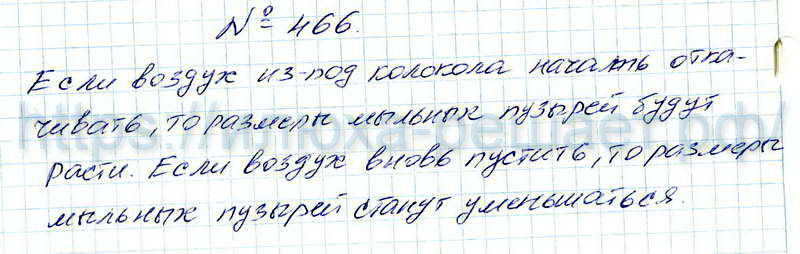 № 466.
Если воздух из-под колокола начать отка-
чивать, то размеры мыльных пузырей будут
расти. Если воздух вновь пустить, то размеры
мыльных пузырей станут уменьшаться.